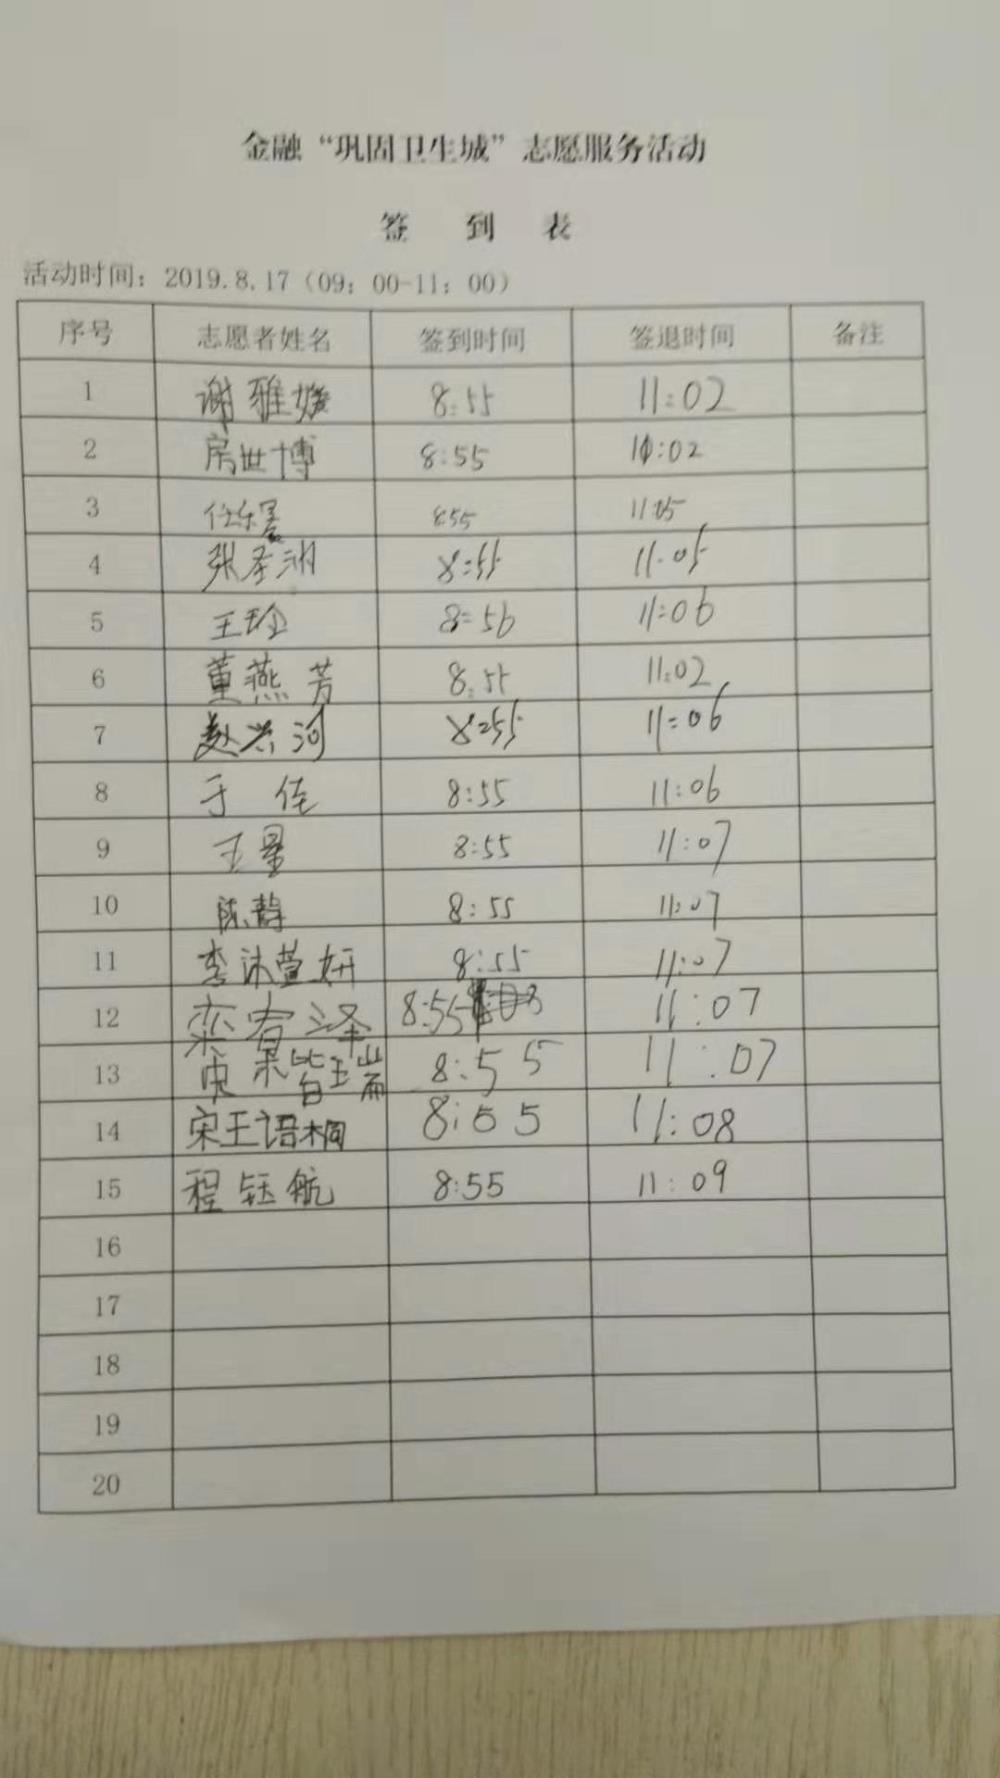 金融“巩固卫生城”志愿服务活动
签 到 表
活动时间：2019.8.17（09：00-11：00）
序号 志愿者姓名 签到时间 签退时间 备注
1 谢雅媛 8:55 11:02
2 房世博 8:55 11:02
3 8:55 11:05
4 张圣洲 8:55 11:05
5 王玲 8:56 11:06
6 董燕芳 8:55 11:02
7 赵兴河 8:55 11:06
8 于佳 8:55 11:06
9 王星 8:55 11:07
10 陈静 8:55 11:07
11 李沐萱妍 8:55 11:07
12 栾宥泽 8:55 11:07
13 8:55 11:07
14 宋王语桐 8:55 11:08
15 程钰航 8:55 11:09
16
17
18
19
20